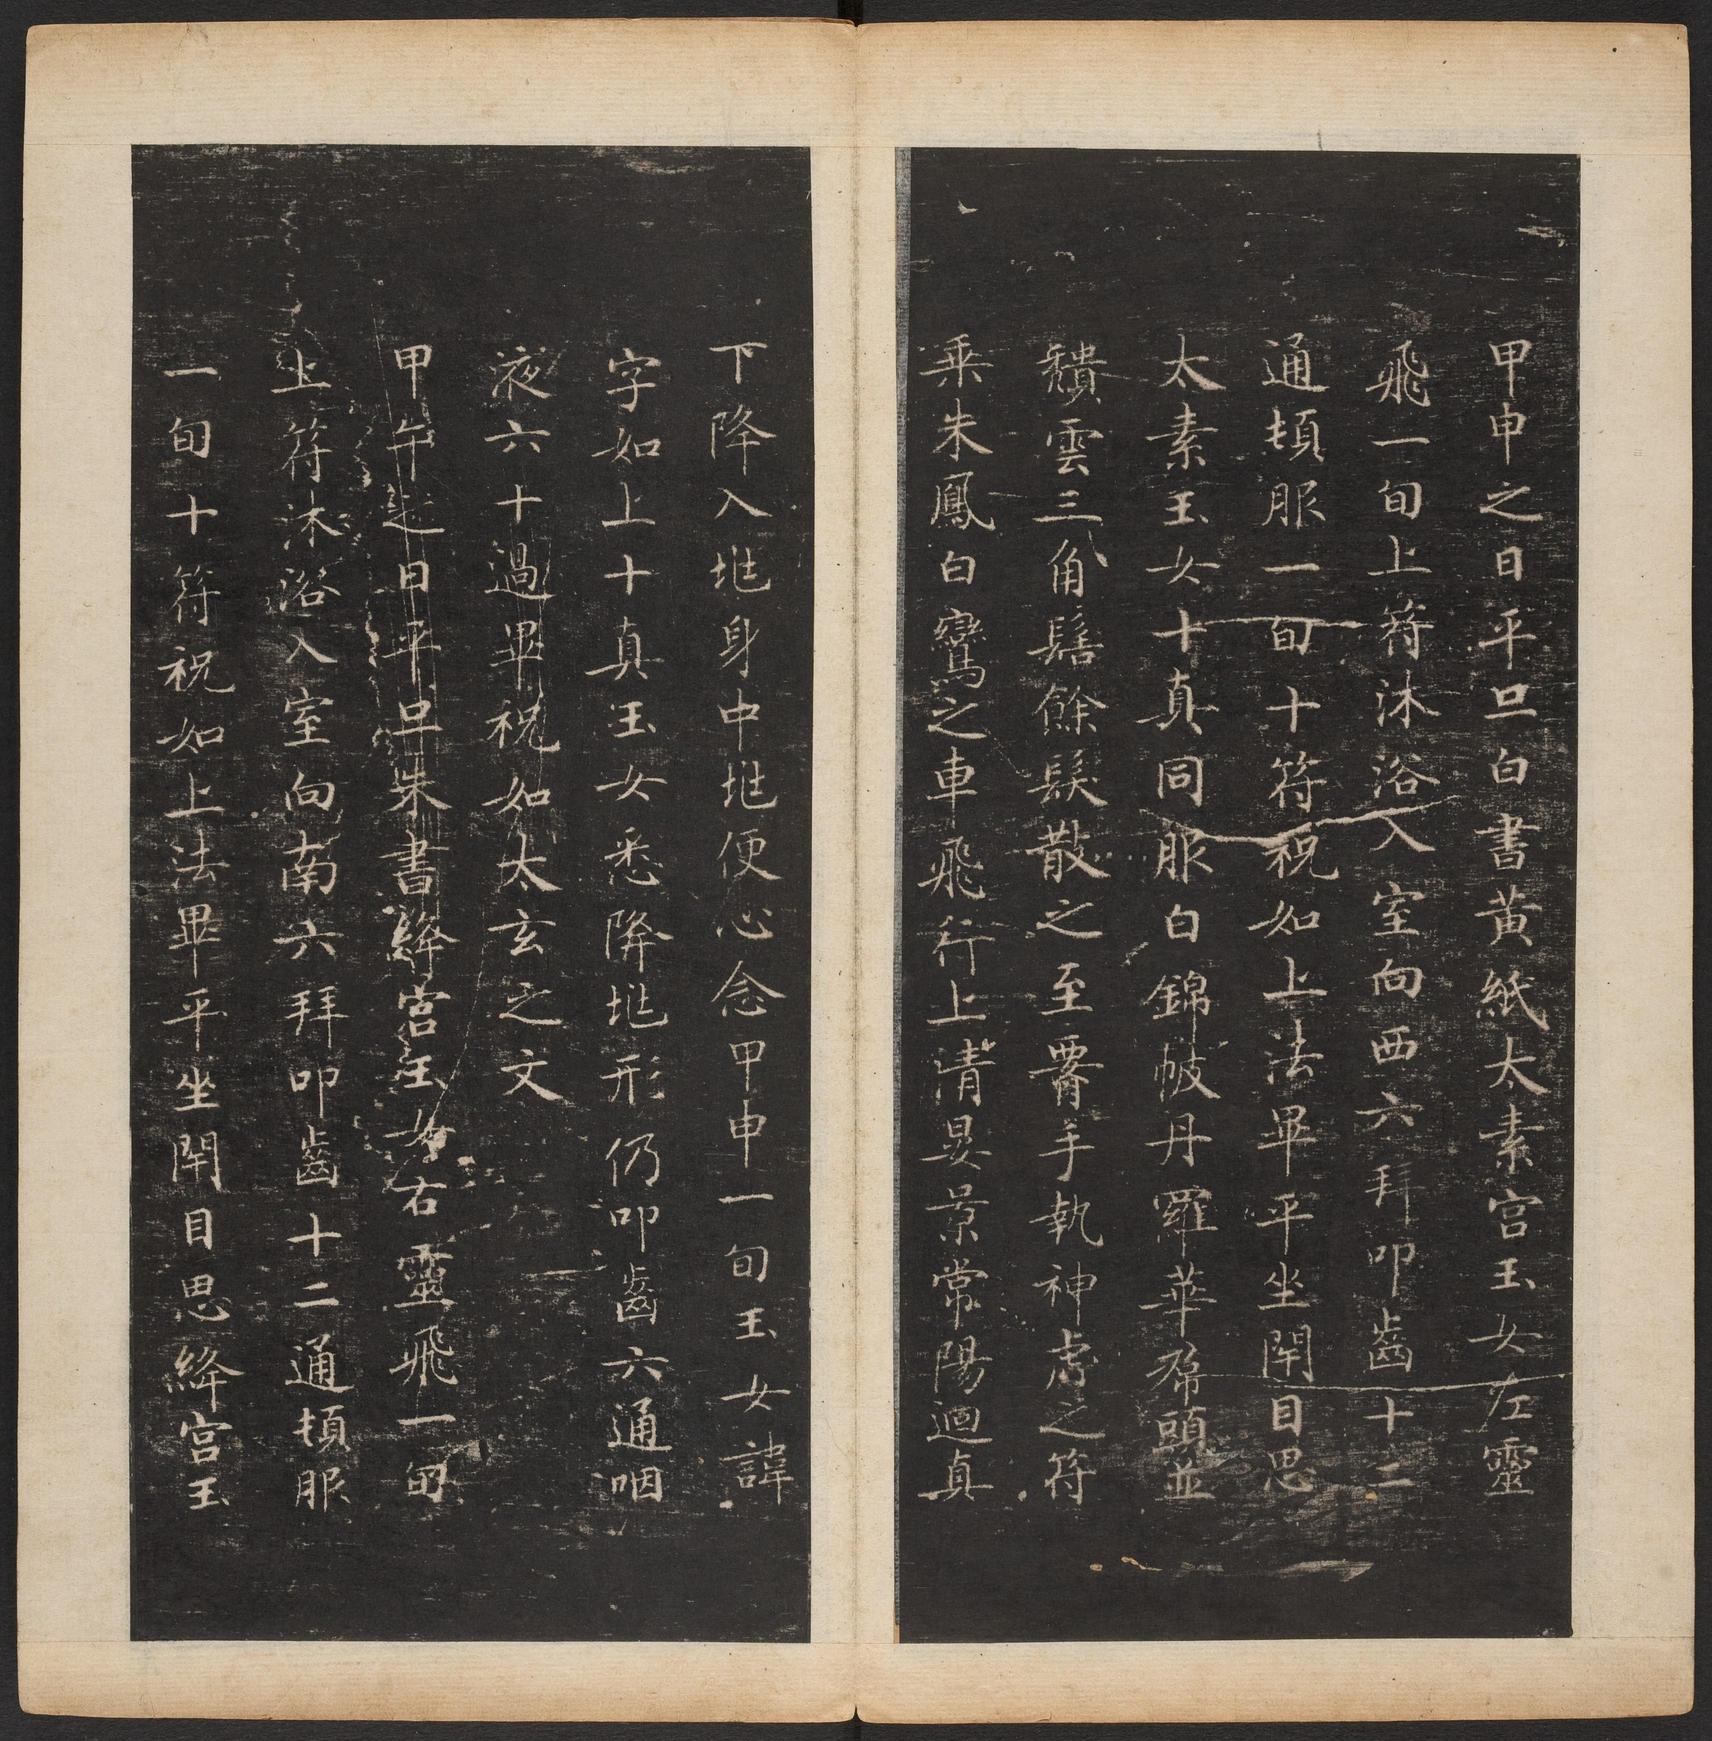 甲申之日平旦白書黃紙太素宮玉女左靈
飛一旬上符沐浴入室向西六拜叩齒十二
通頓服一旬十符祝如上法畢平坐閉目思
太素玉女十真同服白錦帔丹羅華帬頭並
頹雲三角髻餘髮散之至腰手執神虎之符
乘朱鳳白鸞之車飛行上清晏景常陽迴真
下降入兆身中兆便心念甲申一旬玉女諱
字如上十真玉女悉降兆形仍叩齒六通咽
液六十過畢祝如太玄之文
甲午之日平旦朱書絳宮玉女右靈飛一旬
上符沐浴入室向南六拜叩齒十二通頓服
一旬十符祝如上法畢平坐閉目思絳宮玉